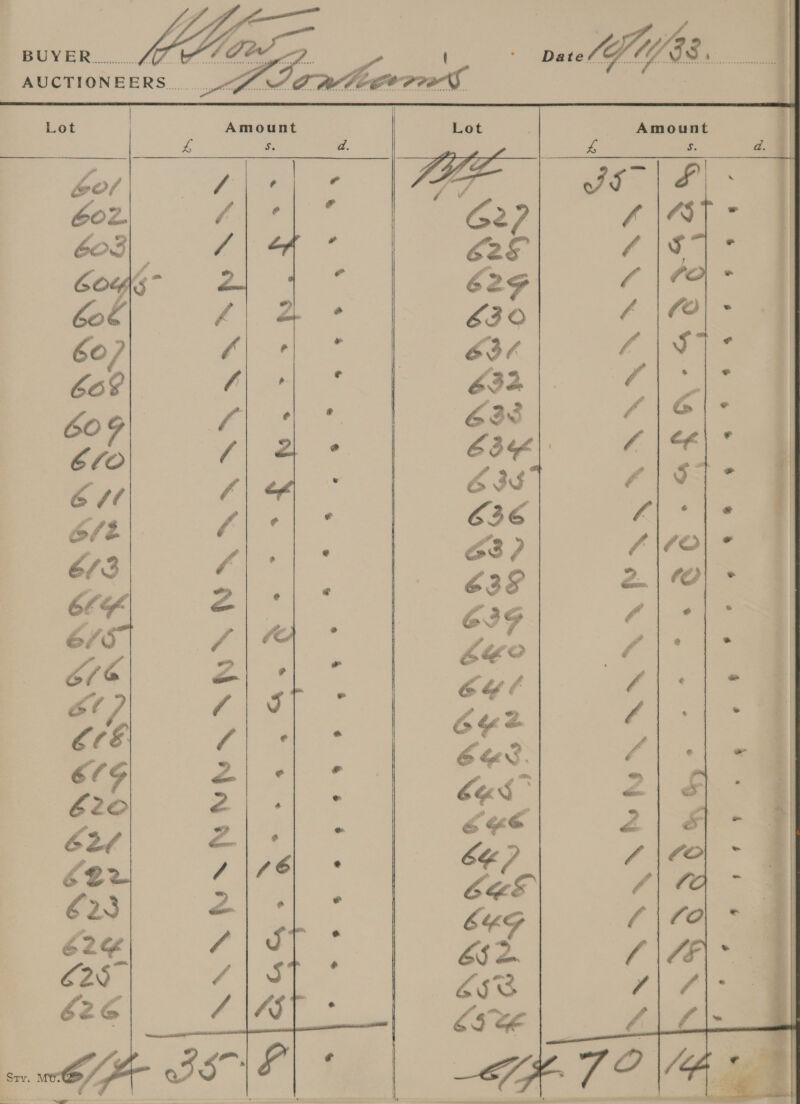 BUYER
Date 10/11/33.
AUCTIONEERS Bonhams
Lot Amount
£ s. d.
601 1 " "
602 1 " "
603 1 4 "
604/5 2 " "
606 1 2 "
607 1 " "
608 1 " "
609 1 " "
610 1 2 "
611 1 4 "
612 1 " "
613 1 " "
614 2 " "
615 1 10 "
616 2 " "
617 1 5 "
618 1 " "
619 2 " "
620 2 " "
621 2 " "
622 1 16 "
623 2 " "
624 1 5 "
625 1 5 "
626 1 15 "
C/f 35 8 "
Lot Amount
£ s. d.
B/f 35 8 "
627 1 15 "
628 1 5 "
629 1 10 "
630 1 10 "
631 1 5 "
632 1 " "
633 1 6 "
634 1 4 "
635 1 5 "
636 1 " "
637 1 10 "
638 2 10 "
639 1 " "
640 1 " "
641 1 " "
642 1 " "
643. 1 " "
645 2 8 "
646 2 8 "
647 1 10 "
648 1 10 "
649 1 10 "
652 1 18 "
653 1 1 "
654 1 1 "
C/f 70 14 "